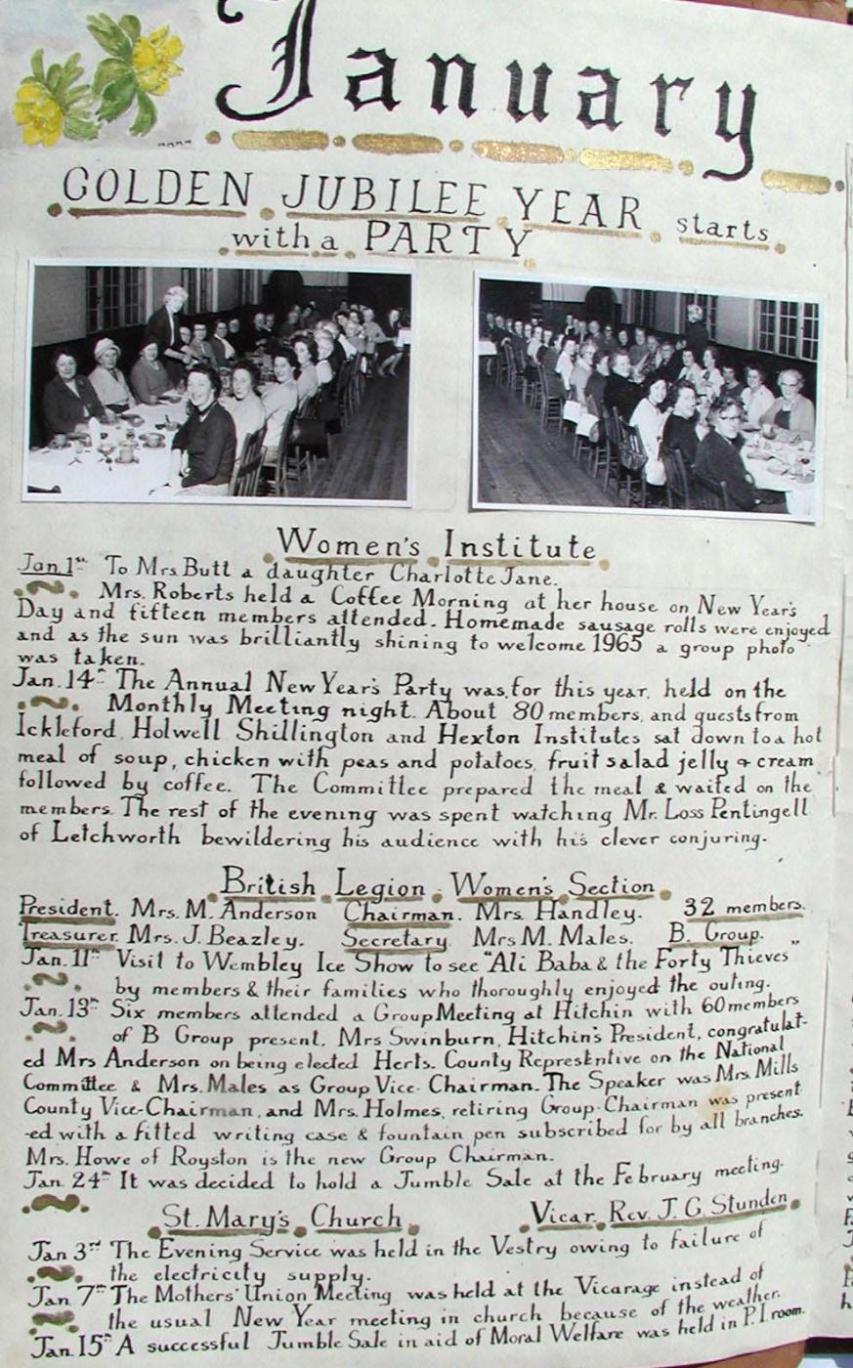 January
GOLDEN JUBILEE YEAR starts
with a PARTY
Women's Institute
Jan 1st To Mrs Butt a daughter Charlotte Jane.
Mrs. Roberts held a Coffee Morning at her house on New Year's
Day and fifteen members attended. Homemade sausage rolls were enjoyed
and as the sun was brilliantly shining to welcome 1965 a group photo
was taken.
Jan. 14th The Annual New Year's Party was, for this year, held on the
Monthly Meeting night. About 80 members, and guests from
Ickleford, Holwell Shillington and Hexton Institutes sat down to a hot
meal of soup, chicken with peas and potatoes, fruit salad jelly & cream,
followed by coffee. The Committee prepared the meal & waited on the
members. The rest of the evening was spent watching Mr. Loss Pentingell
of Letchworth bewildering his audience with his clever conjuring.
British Legion. Women's Section.
President. Mrs. M. Anderson Chairman. Mrs. Handley. 32 members.
Treasurer. Mrs. J. Beazley. Secretary Mrs M. Males. B. Group.
Jan. 11th Visit to Wembley Ice Show to see "Ali Baba & the Forty Thieves"
by members & their families who thoroughly enjoyed the outing.
Jan. 13th Six members attended a Group Meeting at Hitchin with 60 members
of B Group present. Mrs Swinburn, Hitchin's President, congratulat-
ed Mrs Anderson on being elected Herts. County Represtntive on the National
Committee & Mrs. Males as Group Vice-Chairman. The Speaker was Mrs. Mills
County Vice-Chairman, and Mrs. Holmes, retiring Group-Chairman was present
-ed with a fitted writing case & fountain pen subscribed for by all branches.
Mrs. Howe of Royston is the new Group Chairman.
Jan. 24th It was decided to hold a Jumble Sale at the February meeting.
St. Mary's Church. Vicar. Rev. J. G. Stunden.
Jan 3rd The Evening Service was held in the Vestry owing to failure of
the electricity supply.
Jan. 7th The Mothers' Union Meeting was held at the Vicarage instead of
the usual New Year meeting in church because of the weather.
Jan. 15th A successful Jumble Sale in aid of Moral Welfare was held in P.I. room.